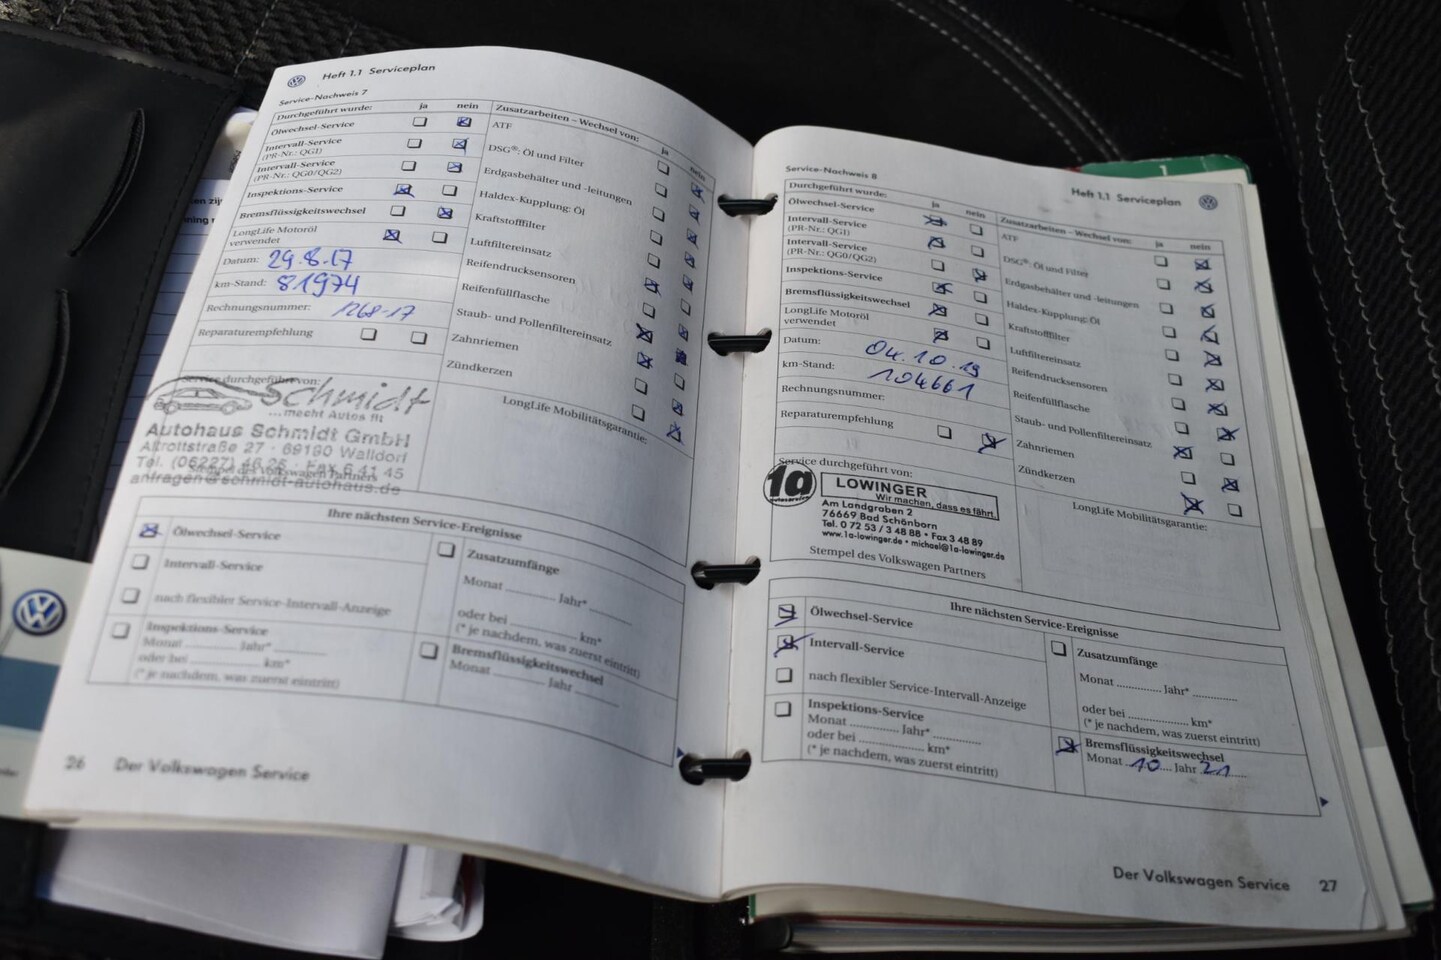 Heft 1.1 Serviceplan
Service-Nachweis 7
Durchgeführt wurde: ja nein
Ölwechsel-Service
Intervall-Service
(PR-Nr.: QG1)
Intervall-Service
(PR-Nr.: QG0/QG2)
Inspektions-Service
Bremsflüssigkeitswechsel
LongLife Motoröl
verwendet
Datum: 29.8.17
km-Stand: 81974
Rechnungsnummer: 1268-17
Reparaturempfehlung
Service durchgeführt von:
Schmidt
...macht Autos fit
Autohaus Schmidt GmbH
Altrottstraße 27 · 69190 Walldorf
Tel. (06227) 46 25 · FAX 6 41 45
Stempel des Volkswagen Partners
anfragen@schmidt-autohaus.de
Zusatzarbeiten – Wechsel von: ja nein
ATF
DSG®: Öl und Filter
Erdgasbehälter und -leitungen
Haldex-Kupplung: Öl
Kraftstofffilter
Luftfiltereinsatz
Reifendrucksensoren
Reifenfüllflasche
Staub- und Pollenfiltereinsatz
Zahnriemen
Zündkerzen
LongLife Mobilitätsgarantie:
Ihre nächsten Service-Ereignisse
Ölwechsel-Service
Intervall-Service
nach flexibler Service-Intervall-Anzeige
Inspektions-Service
Monat ............ Jahr* ............
oder bei .................... km*
(* je nachdem, was zuerst eintritt)
Zusatzumfänge
Monat ............ Jahr* ............
oder bei .................... km*
(* je nachdem, was zuerst eintritt)
Bremsflüssigkeitswechsel
Monat ............ Jahr ............
26 Der Volkswagen Service
Service-Nachweis 8
Heft 1.1 Serviceplan
Durchgeführt wurde: ja nein
Ölwechsel-Service
Intervall-Service
(PR-Nr.: QG1)
Intervall-Service
(PR-Nr.: QG0/QG2)
Inspektions-Service
Bremsflüssigkeitswechsel
LongLife Motoröl
verwendet
Datum: 04.10.19
km-Stand: 104661
Rechnungsnummer:
Reparaturempfehlung
Service durchgeführt von:
1a
autoservice
LOWINGER
Wir machen, dass es fährt.
Am Landgraben 2
76669 Bad Schönborn
Tel. 0 72 53 / 3 48 88 • Fax 3 48 89
www.1a-lowinger.de • michael@1a-lowinger.de
Stempel des Volkswagen Partners
Zusatzarbeiten – Wechsel von: ja nein
ATF
DSG®: Öl und Filter
Erdgasbehälter und -leitungen
Haldex-Kupplung: Öl
Kraftstofffilter
Luftfiltereinsatz
Reifendrucksensoren
Reifenfüllflasche
Staub- und Pollenfiltereinsatz
Zahnriemen
Zündkerzen
LongLife Mobilitätsgarantie:
Ihre nächsten Service-Ereignisse
Ölwechsel-Service
Intervall-Service
nach flexibler Service-Intervall-Anzeige
Inspektions-Service
Monat ............ Jahr* ............
oder bei .................... km*
(* je nachdem, was zuerst eintritt)
Zusatzumfänge
Monat ............ Jahr* ............
oder bei .................... km*
(* je nachdem, was zuerst eintritt)
Bremsflüssigkeitswechsel
Monat ..10.... Jahr 21......
Der Volkswagen Service 27
1